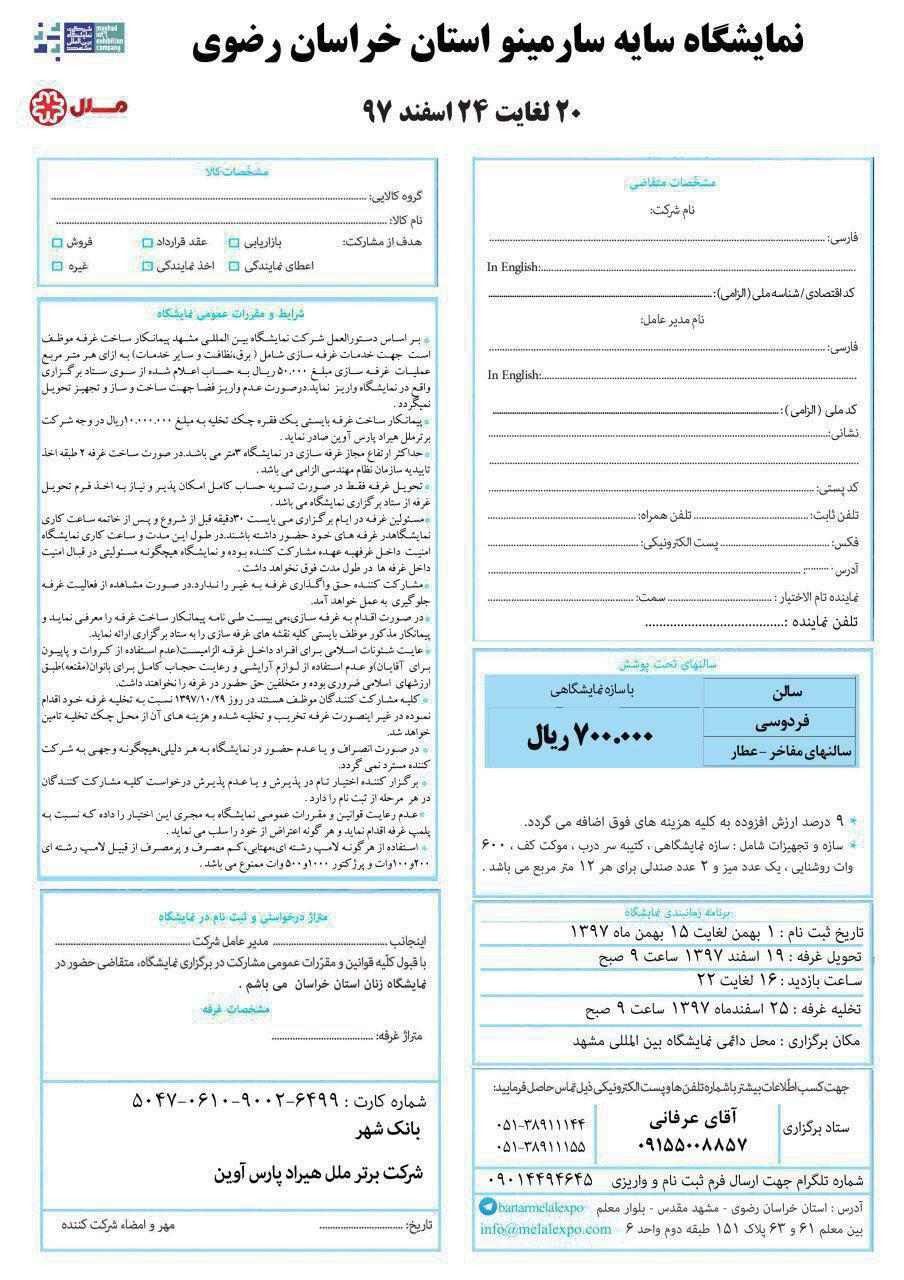 شرکت نمایشگاه بین المللی مشهد
mashad int'l exhibition company
نمایشگاه سایه سارمینو استان خراسان رضوی
ملال
۲۰ لغایت ۲۴ اسفند ۹۷
مشخصات متقاضی
نام شرکت:
فارسی:
In English:
کد اقتصادی/ شناسه ملی (الزامی):
نام مدیر عامل:
فارسی:
In English:
کد ملی (الزامی):
نشانی:
کد پستی:
تلفن ثابت: تلفن همراه:
فکس: پست الکترونیکی:
آدرس:
نماینده تام الاختیار: سمت:
تلفن نماینده:
سالنهای تحت پوشش
سالن باسازه نمایشگاهی
فردوسی
سالنهای مفاخر - عطار
۷۰۰.۰۰۰ ریال
* ۹ درصد ارزش افزوده به کلیه هزینه های فوق اضافه می گردد.
* سازه و تجهیزات شامل : سازه نمایشگاهی ، کتیبه سر درب ، موکت کف ، ۶۰۰
وات روشنایی ، یک عدد میز و ۲ عدد صندلی برای هر ۱۲ متر مربع می باشد .
برنامه زمانبندی نمایشگاه
تاریخ ثبت نام : ۱ بهمن لغایت ۱۵ بهمن ماه ۱۳۹۷
تحویل غرفه : ۱۹ اسفند ۱۳۹۷ ساعت ۹ صبح
ساعت بازدید : ۱۶ لغایت ۲۲
تخلیه غرفه : ۲۵ اسفندماه ۱۳۹۷ ساعت ۹ صبح
مکان برگزاری : محل دائمی نمایشگاه بین المللی مشهد
جهت کسب اطلاعات بیشتر با شماره تلفن ها و پست الکترونیکی ذیل تماس حاصل فرمایید:
ستاد برگزاری
آقای عرفانی
۰۹۱۵۵۰۰۸۸۵۷
۰۵۱-۳۸۹۱۱۱۴۴
۰۵۱-۳۸۹۱۱۱۵۵
شماره تلگرام جهت ارسال فرم ثبت نام و واریزی ۰۹۰۱۴۴۹۴۶۴۵
آدرس : استان خراسان رضوی - مشهد مقدس - بلوار معلم bartarmelalexpo
بین معلم ۶۱ و ۶۳ پلاک ۱۵۱ طبقه دوم واحد ۶ info@melalexpo.com
مشخصات کالا
گروه کالایی:
نام کالا:
هدف از مشارکت: بازاریابی عقد قرارداد فروش
اعطای نمایندگی اخذ نمایندگی غیره
شرایط و مقررات عمومی نمایشگاه
* بر اساس دستورالعمل شرکت نمایشگاه بین المللی مشهد پیمانکار ساخت غرفه موظف
است جهت خدمات غرفه سازی شامل ( برق،نظافت و سایر خدمات) به ازای هر متر مربع
عملیات غرفه سازی مبلغ ۵۰.۰۰۰ ریال به حساب اعلام شده از سوی ستاد برگزاری
واقع در نمایشگاه واریز نماید.درصورت عدم واریز فضا جهت ساخت و ساز و تجهیز تحویل
نمیگردد .
* پیمانکار ساخت غرفه بایستی یک فقره چک تخلیه به مبلغ ۱۰.۰۰۰.۰۰۰ریال در وجه شرکت
برترملل هیراد پارس آوین صادر نماید .
* حداکثر ارتفاع مجاز غرفه سازی در نمایشگاه ۳متر می باشد.در صورت ساخت غرفه ۲ طبقه اخذ
تاییدیه سازمان نظام مهندسی الزامی می باشد .
* تحویل غرفه فقط در صورت تسویه حساب کامل امکان پذیر و نیاز به اخذ فرم تحویل
غرفه از ستاد برگزاری نمایشگاه می باشد .
*مسئولین غرفه در ایام برگزاری می بایست ۳۰دقیقه قبل از شروع و پس از خاتمه ساعت کاری
نمایشگاهدر غرفه های خود حضور داشته باشند.در طول این مدت و ساعت کاری نمایشگاه
امنیت داخل غرفهبه عهده مشارکت کننده بوده و نمایشگاه هیچگونه مسئولیتی در قبال امنیت
داخل غرفه ها در طول مدت فوق نخواهد داشت .
* مشارکت کننده حق واگذاری غرفه به غیر را ندارد.در صورت مشاهده از فعالیت غرفه
جلوگیری به عمل خواهد آمد.
* در صورت اقدام به غرفه سازی،می بیست طی نامه پیمانکار ساخت غرفه را معرفی نماید و
پیمانکار مذکور موظف بایستی کلیه نقشه های غرفه سازی را به ستاد برگزاری ارائه نماید.
* عایت شئونات اسلامی برای افراد داخل غرفه الزامیست(عدم استفاده از کروات و پاپیون
برای آقایان)و عدم استفاده از لوازم آرایشی و رعایت حجاب کامل برای بانوان(مقنعه)طبق
ارزشهای اسلامی ضروری بوده و متخلفین حق حضور در غرفه را نخواهند داشت.
* کلیه مشارکت کنندگان موظف هستند در روز ۱۳۹۷/۱۰/۲۹ نسبت به تخلیه غرفه خود اقدام
نموده در غیر اینصورت غرفه تخریب و تخلیه شده و هزینه های آن از محل چک تخلیه تامین
خواهد شد.
* در صورت انصراف و یا عدم حضور در نمایشگاه به هر دلیلی،هیچگونه وجهی به شرکت
کننده مسترد نمی گردد.
* برگزار کننده اختیار تام در پذیرش و یا عدم پذیرش درخواست کلیه مشارکت کنندگان
در هر مرحله از ثبت نام را دارد .
*عدم رعایت قوانین و مقررات عمومی نمایشگاه به مجری این اختیار را داده که نسبت به
پلمپ غرفه اقدام نماید و هر گونه اعتراض از خود را سلب می نماید .
* استفاده از هرگونه لامپ رشته ای،مهتابی،کم مصرف و پرمصرف از قبیل لامپ رشته ای
۲۰۰و۱۰۰وات و پرژکتور ۱۰۰۰و۵۰۰ وات ممنوع می باشد .
متراژ درخواستی و ثبت نام در نمایشگاه
اینجانب مدیر عامل شرکت
با قبول کلّیه قوانین و مقرّرات عمومی مشارکت در برگزاری نمایشگاه، متقاضی حضور در
نمایشگاه زنان استان خراسان می باشم .
مشخصات غرفه
متراژ غرفه:
شماره کارت : ۵۰۴۷-۰۶۱۰-۹۰۰۲-۶۴۹۹
بانک شهر
شرکت برتر ملل هیراد پارس آوین
تاریخ: مهر و امضاء شرکت کننده